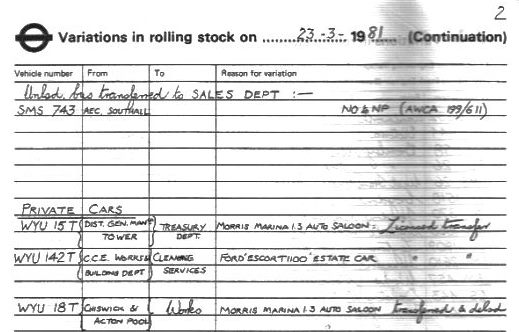 2
Variations in rolling stock on 23-3- 1981 (Continuation)
Vehicle number From To Reason for variation
Unlsd. bus transferred to SALES DEPT :—
SMS 743 AEC. SOUTHALL NO & NP (AWCA 199/611)
PRIVATE CARS
WYU 15T DIST. GEN. MAN TOWER TREASURY DEPT. MORRIS MARINA 1.3 AUTO SALOON. Licensed transfer
WYU 142T C.C.E. WORKS & BUILDING DEPT CLEANING SERVICES FORD 'ESCORT 1100' ESTATE CAR " "
WYU 18T CHISWICK & ACTON POOL Works MORRIS MARINA 1.3 AUTO SALOON transferred & delsd